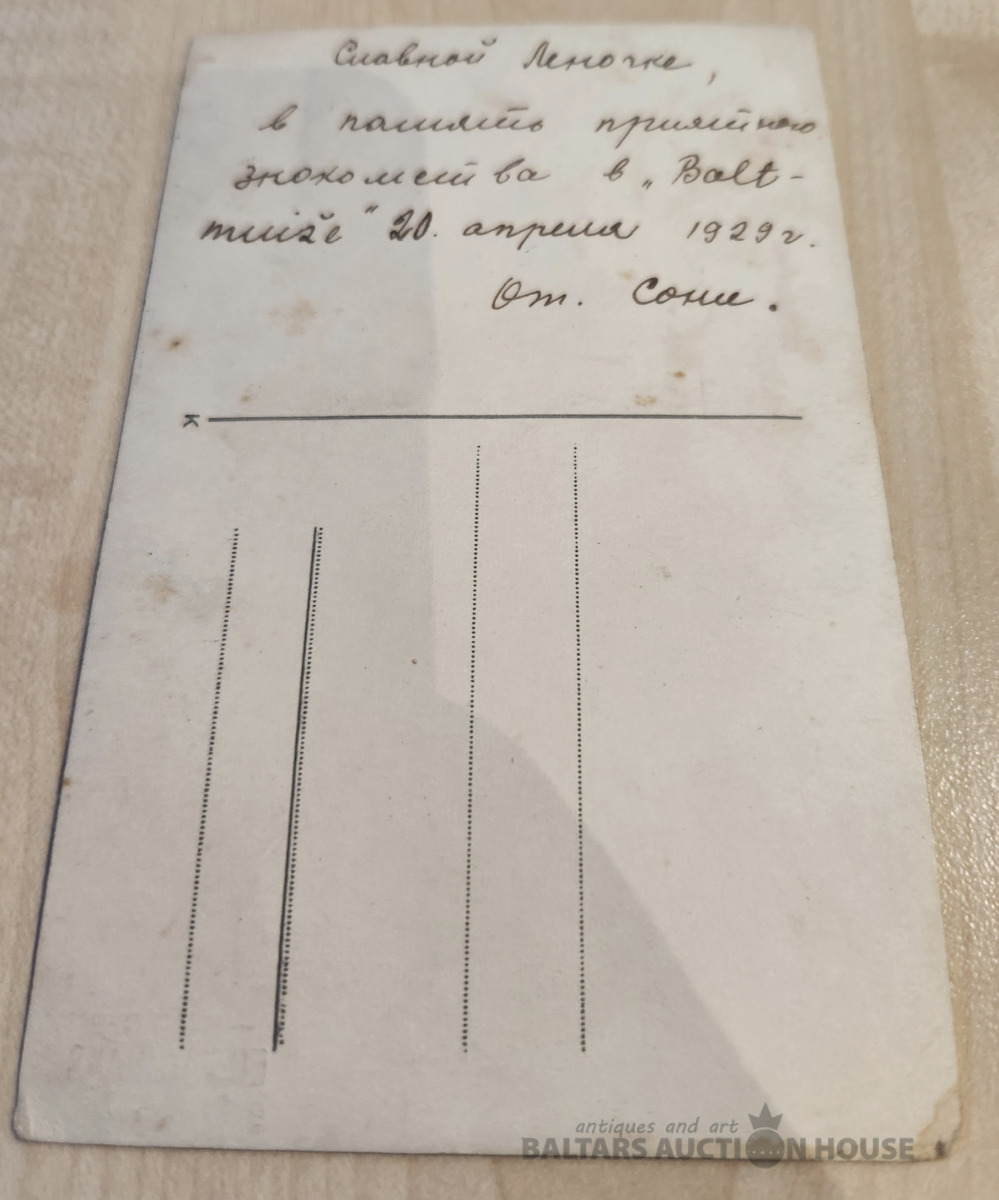 Славной Леночке,
в память приятного
знакомства в „Balt-
muižе" 20. апреля 1929 г.
От. Сони.
K
antiques and art
BALTARS AUCTION HOUSE